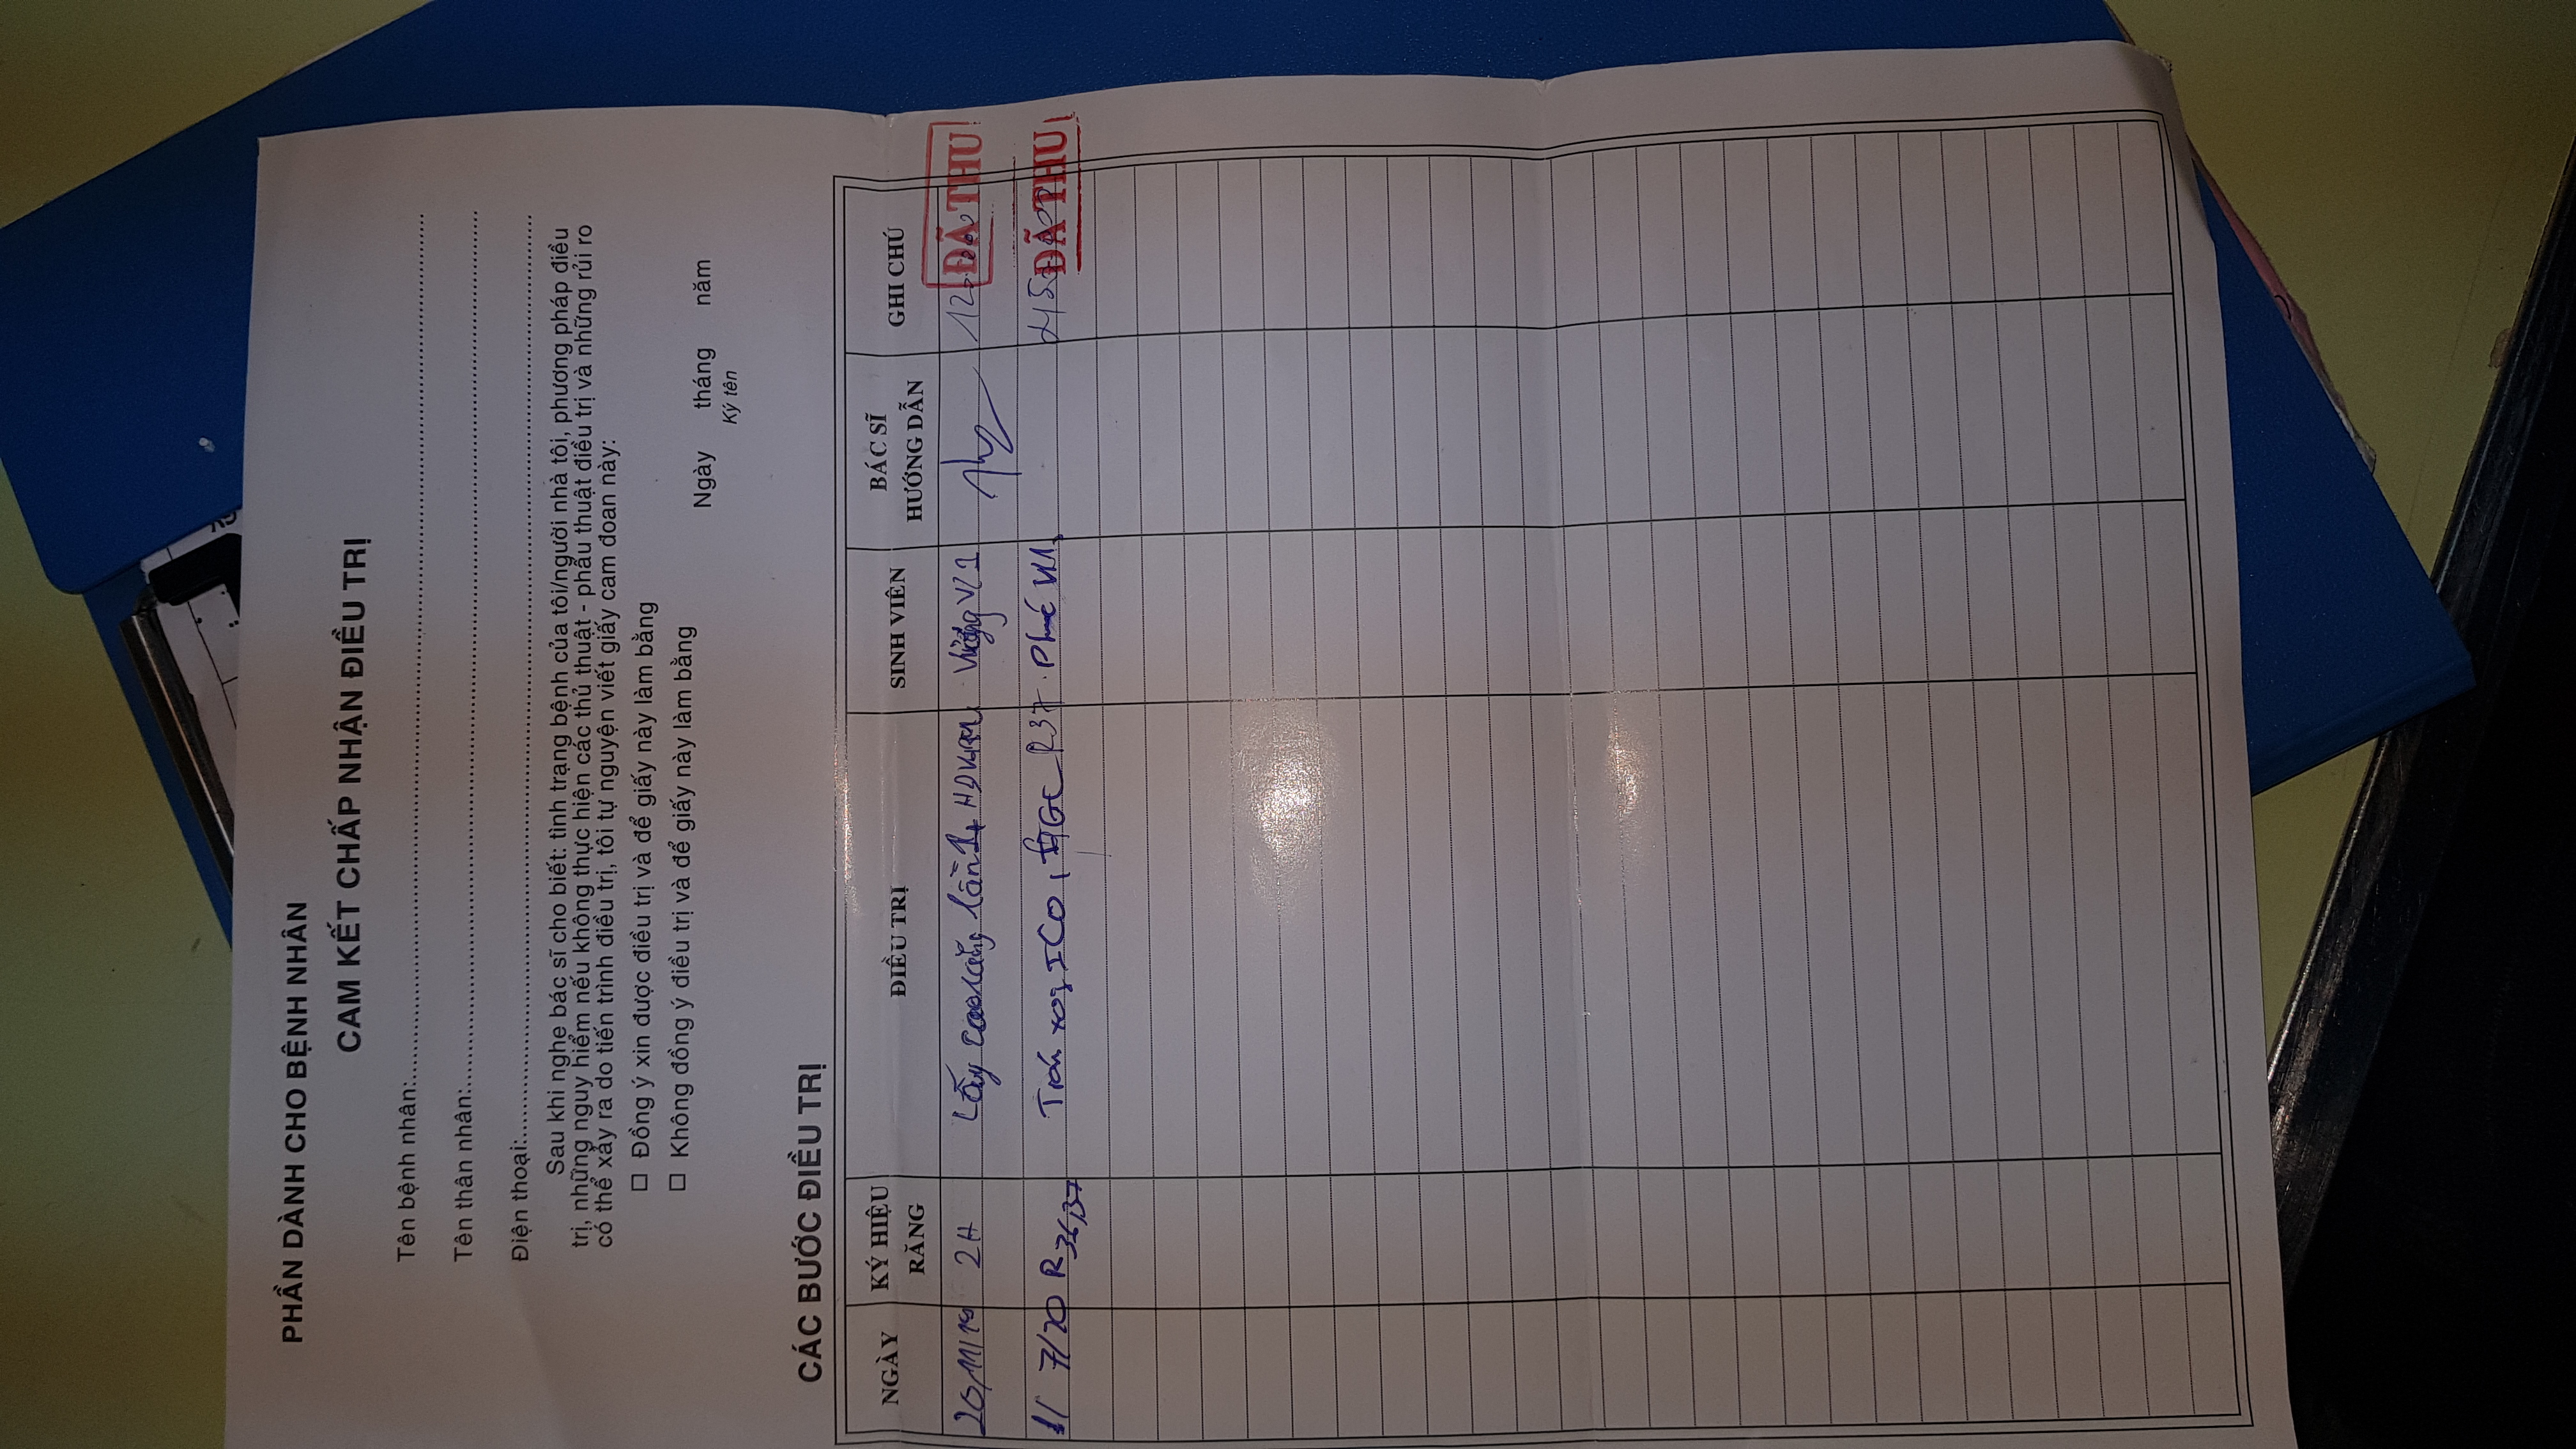 PHẦN DÀNH CHO BỆNH NHÂN
CAM KẾT CHẤP NHẬN ĐIỀU TRỊ
Tên bệnh nhân:
Tên thân nhân:
Điện thoại:
Sau khi nghe bác sĩ cho biết: tình trạng bệnh của tôi/người nhà tôi, phương pháp điều
trị, những nguy hiểm nếu không thực hiện các thủ thuật - phẫu thuật điều trị và những rủi ro
có thể xảy ra do tiến trình điều trị, tôi tự nguyện viết giấy cam đoan này:
Đồng ý xin được điều trị và để giấy này làm bằng
Không đồng ý điều trị và để giấy này làm bằng
Ngày tháng năm
Ký tên
CÁC BƯỚC ĐIỀU TRỊ
NGÀY KÝ HIỆU RĂNG ĐIỀU TRỊ SINH VIÊN BÁC SĨ HƯỚNG DẪN GHI CHÚ
20/11/19 2H Lấy cao răng lần 1 ĐÃ THU
7/20 R36,37 ICO, GC R37 ĐÃ THU